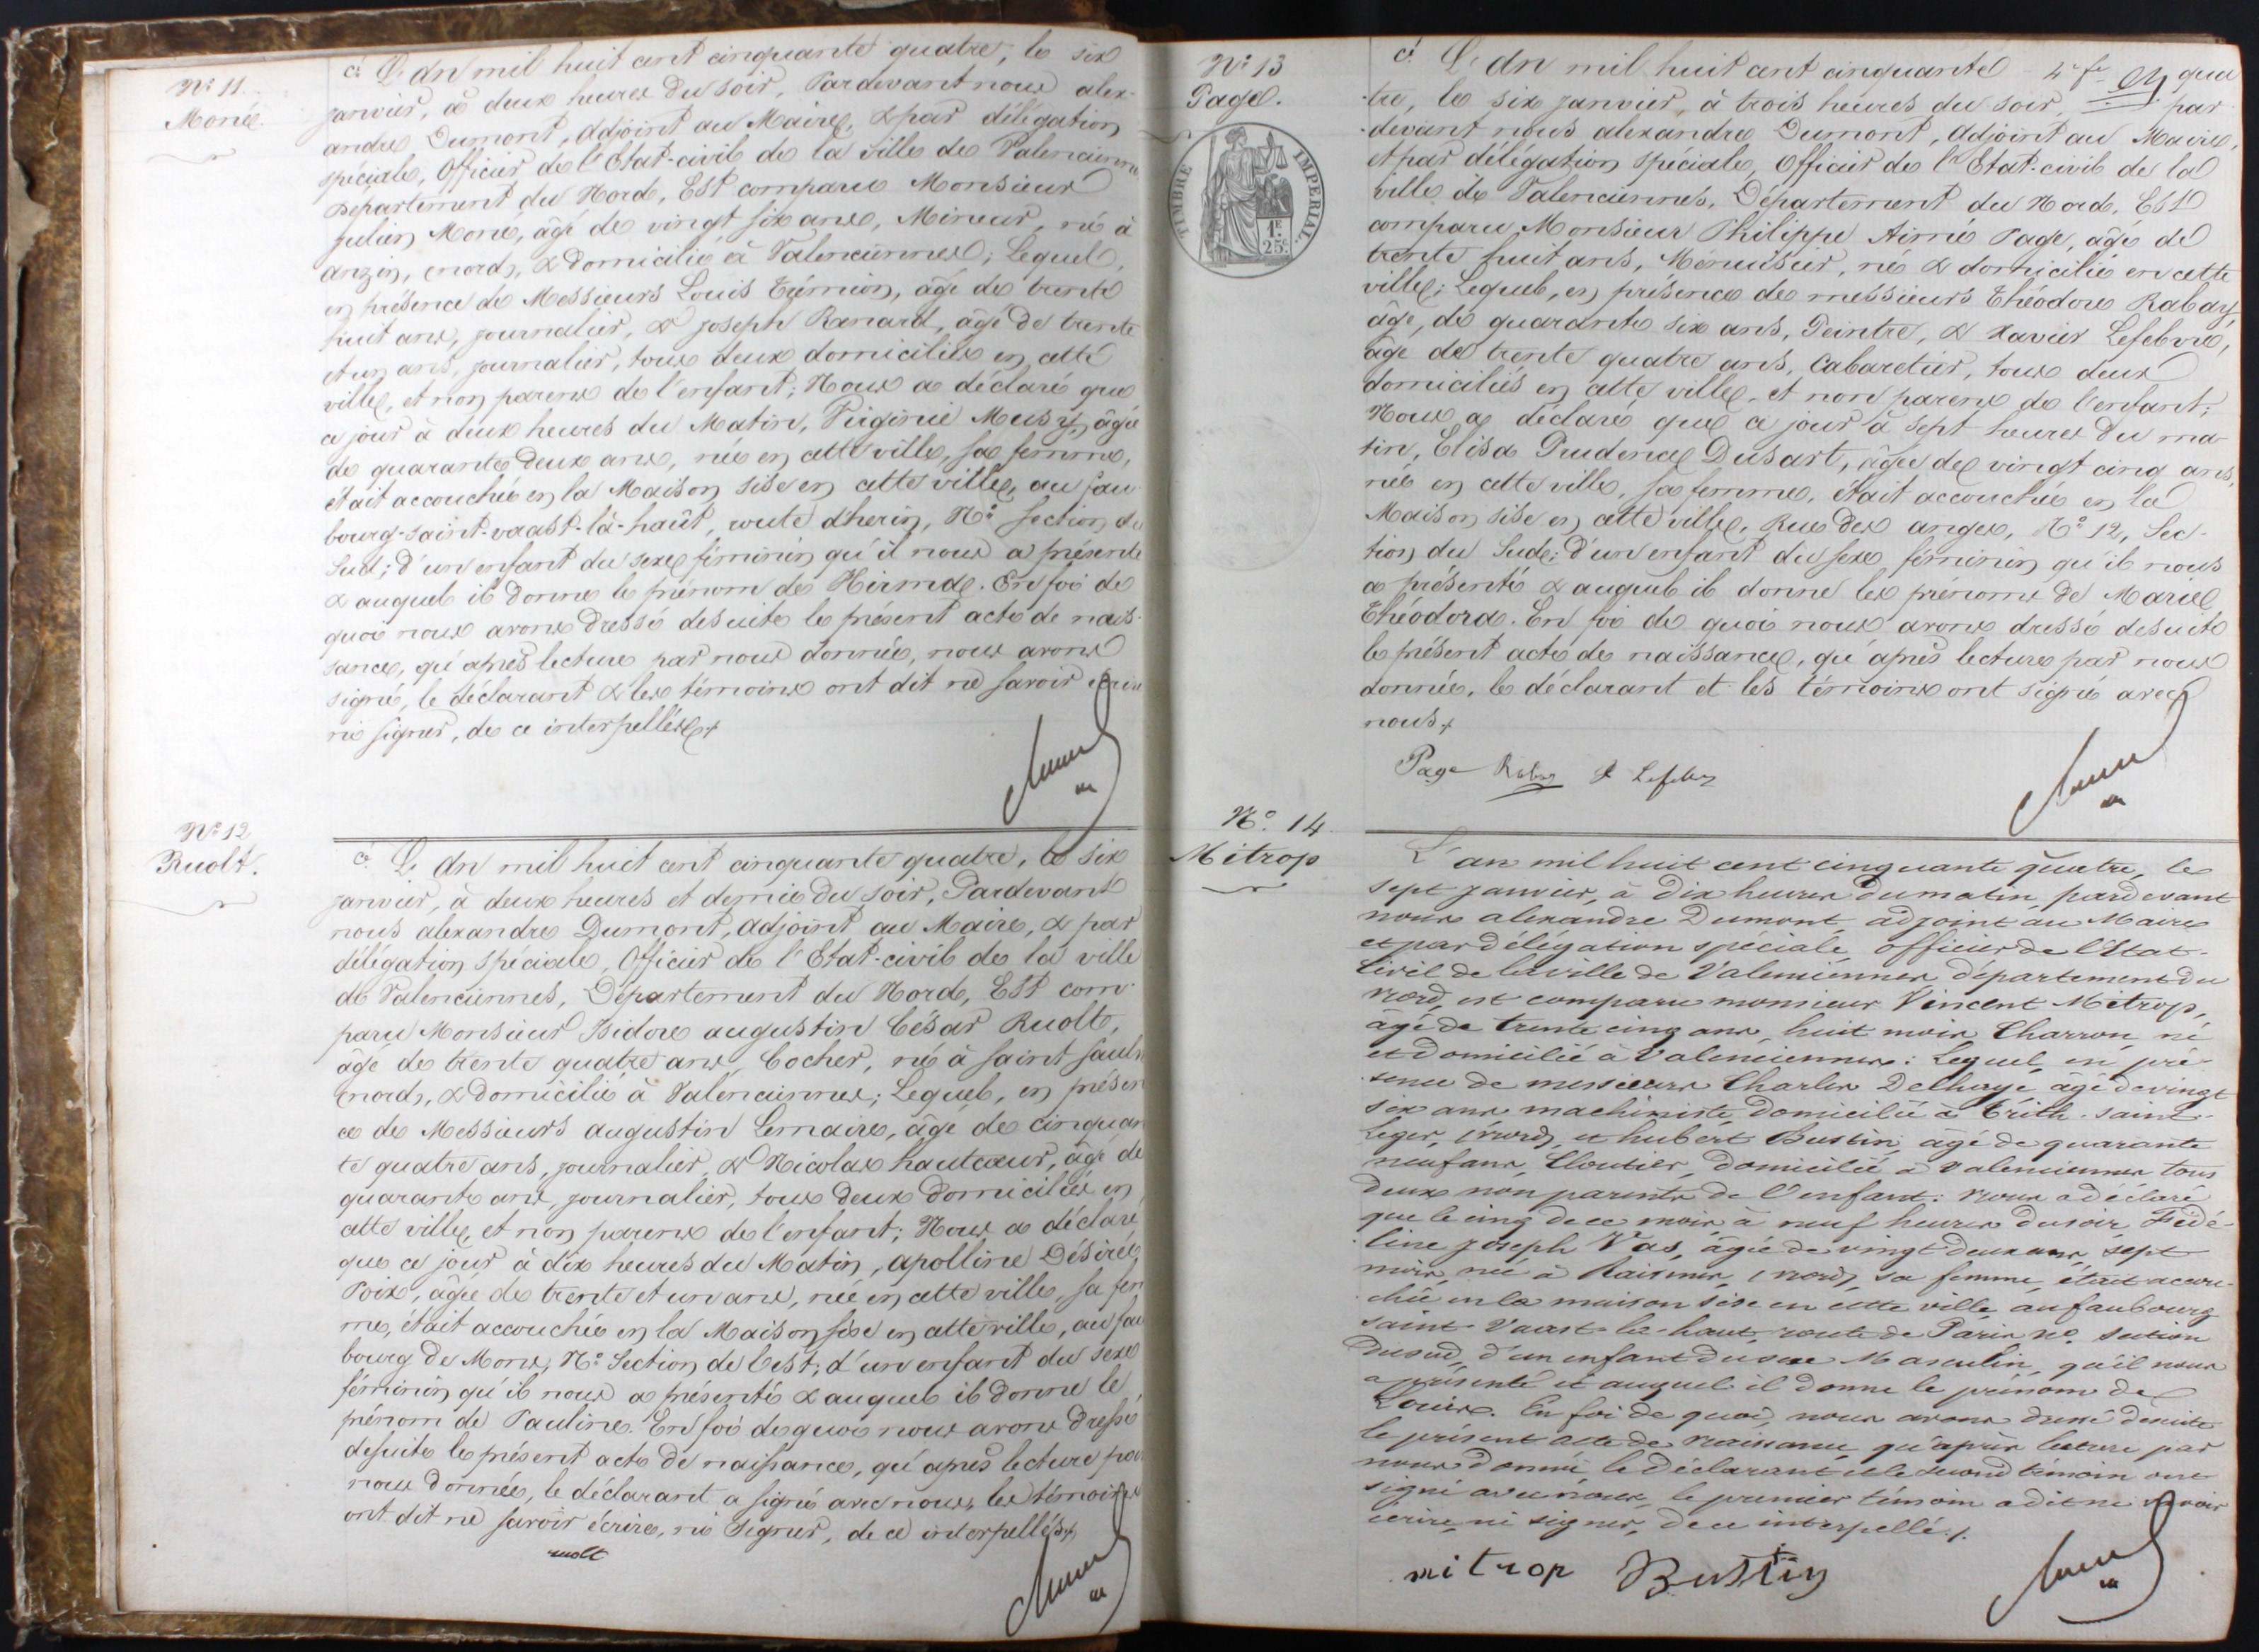 Nº 11.
Monié.
L'An mil huit cent cinquante quatre, le six
janvier, à deux heures du soir, Pardevant nous alex-
andre Dumont, adjoint au Maire, & par délégation
spéciale, Officier de l'Etat-civil de la ville de Valenciennes
Département du Nord, Est comparu Monsieur
julien Monié, âgé de vingt six ans, Mineur, né à
anzin, (nord), & domicilié à Valenciennes; Lequel,
en présence de Messieurs Louis Trémion, âgé de trente
huit ans, journalier, & joseph Renard, âgé de trente
et un ans, journalier, tous deux domiciliés en cette
ville, et non parens de l'enfant; Nous a déclaré que
ce jour à deux heures du Matin, Virginie Musy, âgée
de quarante deux ans, née en cette ville, sa femme,
était accouchée en la Maison sise en cette ville, au fau-
bourg-saint-vaast-là-haut, route d'herin, Nº section du
Sud; d'un enfant du sexe féminin qu'il nous a présenté
& auquel il donne le prénom de
quoi nous avons dressé desuite le présent acte de nais-
sance, qu'après lecture par nous donnée, nous avons
signé, le déclarant & les témoins ont dit ne savoir écrire
ni signer, de ce interpellés.
Nº 12
Ruolt.
L'An mil huit cent cinquante quatre, le six
janvier, à deux heures et demie du soir, Pardevant
nous alexandre Dumont, adjoint au Maire, & par
délégation spéciale, Officier de l'Etat-civil de la ville
de Valenciennes, Département du Nord, Est com-
paru Monsieur Isidore augustin César Ruolt,
âgé de trente quatre ans, Cocher, né à saint saulve
(nord), & domicilié à Valenciennes; Lequel, en présen
ce de Messieurs augustin Lemaire, âgé de cinquan
te quatre ans, journalier, & Nicolas hautcoeur, âgé de
quarante ans, journalier, tous deux domiciliés en
cette ville, et non parens de l'enfant; Nous a déclaré
que ce jour à dix heures du Matin, apolline Désirée
Poix, âgée de trente et un ans, née en cette ville, sa fem
me, était accouchée en la Maison sise en cette ville, au fau
bourg de Mons, Nº Section de l'est; d'un enfant du sexe
féminin qu'il nous a présenté & auquel il donne le
prénom de Pauline. En foi de quoi nous avons dressé
desuite le présent acte de naissance, qu'après lecture par
nous donnée, le déclarant a signé avec nous, les témoins
ont dit ne savoir écrire, ni signer, de ce interpellés.
ruolt
Nº 13
Page.
TIMBRE IMPERIAL.
1F.
25C.
4e fe
L'An mil huit cent cinquante qua
-tre, le six janvier, à trois heures du soir, par
-devant nous alexandre Dumont, adjoint au Maire,
et par délégation spéciale, Officier de l'Etat-civil de la
ville de Valenciennes, Département du Nord, Est
comparu Monsieur Philippe Aimé Page, âgé de
trente huit ans, Menuisier, né & domicilié en cette
ville; Lequel, en présence de messieurs Théodore Rabay,
âgé, de quarante six ans, Peintre, & Xavier Lefebvre,
âgé de trente quatre ans, Cabaretier, tous deux
domiciliés en cette ville, et non parens de l'enfant;
Nous a déclaré que ce jour à sept heures du ma-
tin, Elisa Prudence Dusart, âgée de vingt cinq ans,
née en cette ville, sa femme, était accouchée en la
Maison sise en cette ville, Rue des anges, Nº 12, Sec-
tion du Sud; d'un enfant du sexe féminin qu'il nous
a présenté & auquel il donne les prénoms de Marie
Théodora. En foi de quoi nous avons dressé desuite
le présent acte de naissance, qu'après lecture par nous
donnée, le déclarant et les témoins ont signé avec
nous.
Page Rabay X Lefebv
Nº. 14.
Mitrop
L'an mil huit cent cinquante quatre, le
sept janvier, à dix heures du matin, pardevant
nous alexandre Dumont, adjoint au Maire
et par délégation spéciale, officier de l'Etat-
Civil de la ville de Valenciennes département du
nord, est comparu monsieur Vincent Mitrop,
âgé de trente cinq ans, huit mois, Charron, né
et domicilié à Valenciennes: Lequel, en pré-
sence de messieurs Charles Delhaye, âgé de vingt
six ans machiniste, domicilié à Trith-saint-
Léger, (nord), et hubert Bustin, âgé de quarante
neuf ans, Cloutier, domicilié à Valenciennes tous
deux non parents de l'enfant: nous a déclaré
que le cinq de ce mois, à neuf heures du soir, Fidé-
line joseph Vas, âgée de vingt deux ans, sept
mois, née à Raismes, (nord), sa femme, était accou-
chée en la maison sise en cette ville au faubourg
saint-Vaast-là-haut, route de Paris nº. section
du sud, d'un enfant du sexe Masculin, qu'il nous
a présenté et auquel il donne le prénom de
Louis. En foi de quoi, nous avons dressé desuite
le présent acte de naissance, qu'après lecture par
nous donnée, le déclarant et le second témoin ont
signé avec nous, le premier témoin a dit ne savoir
écrire, ni signer, de ce interpellé.
mitrop Bustin